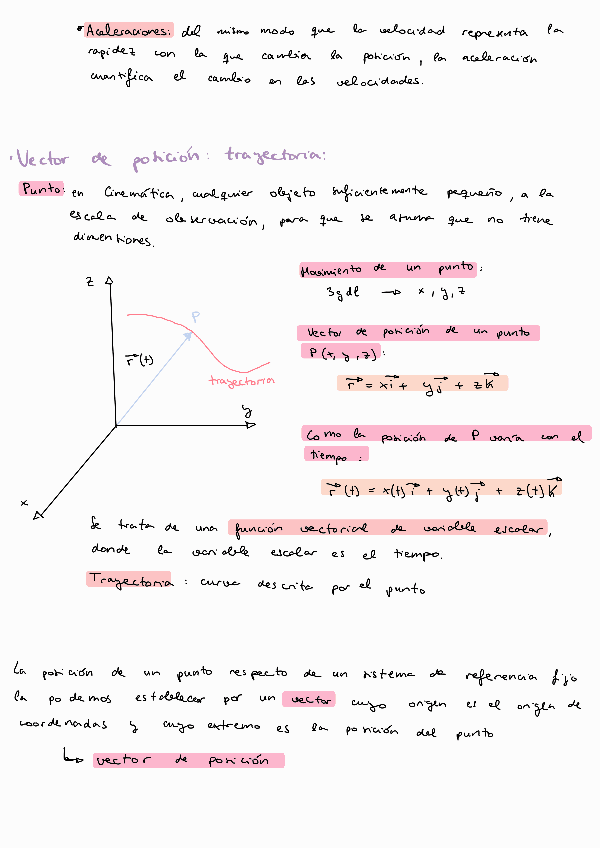 • Aceleraciones: del mismo modo que la velocidad representa la
rapidez con la que cambia la posición, la aceleración
cuantifica el cambio en las velocidades.
• Vector de posición: trayectoria:
Punto: en Cinemática, cualquier objeto suficientemente pequeño, a la
escala de observación, para que se asuma que no tiene
dimensiones.
Movimiento de un punto:
3gdl → x, y, z
Vector de posición de un punto
P(x, y, z):
r⃗ = xi⃗ + yj⃗ + zk⃗
Como la posición de P varía con el
tiempo:
r⃗(t) = x(t)i⃗ + y(t)j⃗ + z(t)k⃗
z
P
r⃗(t)
trayectoria
y
x
Se trata de una función vectorial de variable escalar,
donde la variable escalar es el tiempo.
Trayectoria: curva descrita por el punto
La posición de un punto respecto de un sistema de referencia fijo
la podemos establecer por un vector cuyo origen es el origen de
coordenadas y cuyo extremo es la posición del punto
↳ vector de posición